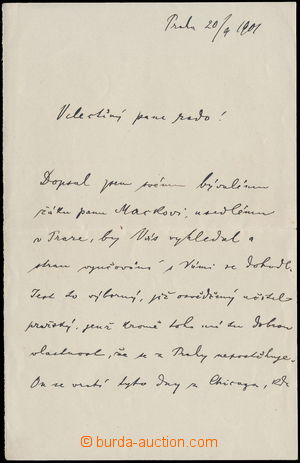 Praha 20/9 1901
Velectěný pane rado!
Dopsal jsem svému bývalému
žáku panu Mackovi, usedlému
v Praze, by Vás vyhledal a
stran vyučování s Vámi se dohodl.
Jest to výborný, již osvědčený učitel
pražský, jenž kromě toho má tu dobrou
vlastnost, že se z Prahy nepostěhuje.
On se vrátí tyto dny z Chicaga, kde
burda-auction.com